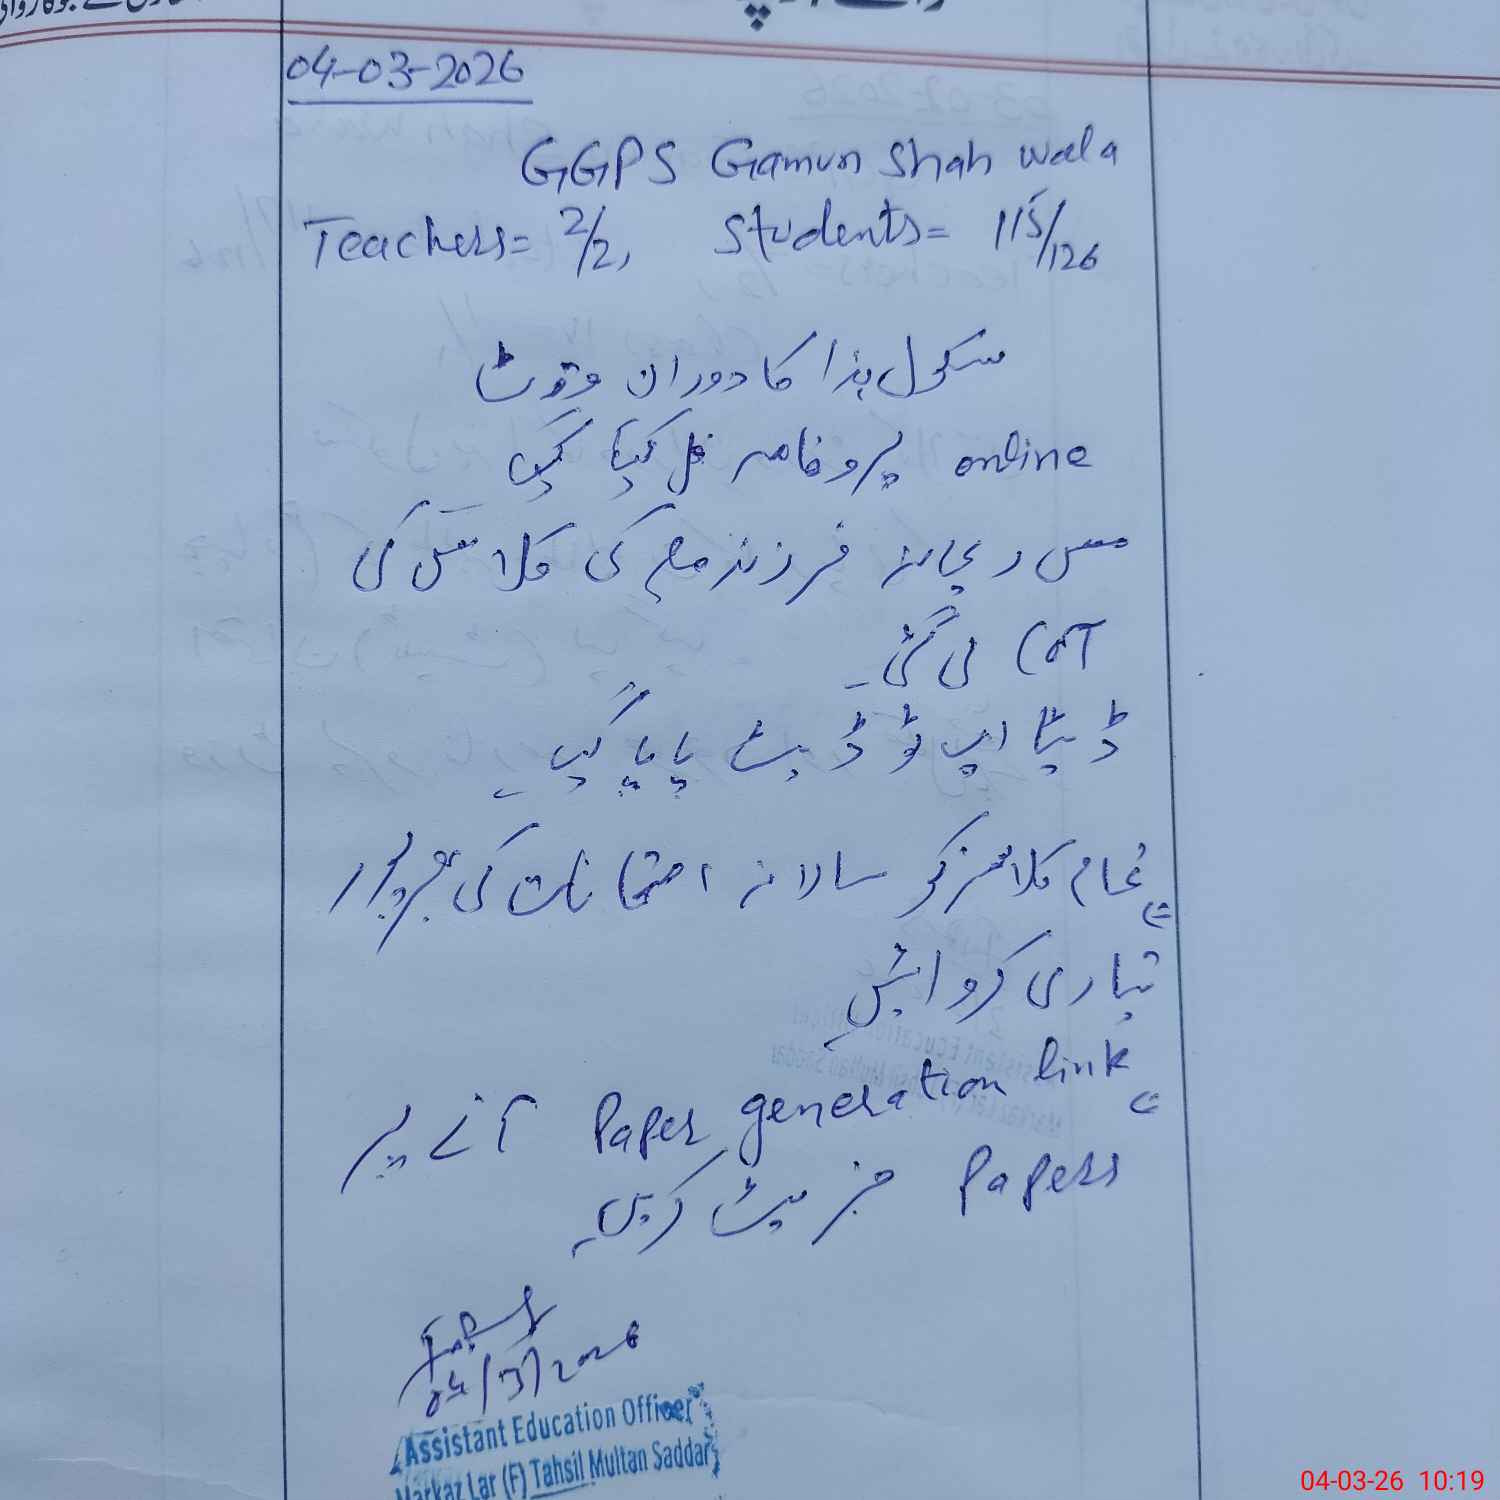 04-03-2026
GGPS Gamun Shah wala
Teachers= 2/2, Students= 115/126
سکول ہذا کا دوران وزٹ
online پروفامہ فل کیا گیا
مس ریحانہ فرزند میم کی کلاس کی
COT لی گئی۔
ڈیٹا اپ ٹو ڈیٹ پایا گیا۔
تمام کلاسز کو سالانہ امتحانات کی بھرپور
تیاری کروائیں
Paper generation link آنے پر
Papers جنریٹ کریں۔
04/3/2026
Assistant Education Officer
Markaz Lar (F) Tahsil Multan Saddar
04-03-26 10:19